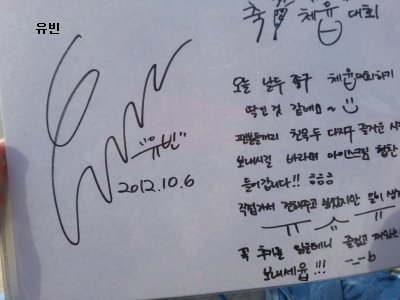 유빈
축 체육 대회
"유빈"
2012.10.6
오늘 날두 좋구 체육대회하기
딱인것 같네요~
팬분들끼리 친목두 다지구 즐거운 시
보내시길 바라며 아이스크림 한
들어갑니다!! ㅎㅎㅎ
직접가서 전해주고 싶었지만 일이 생
ㅠ ㅅ ㅠ
꼭 후기를 읽을테니 즐겁고 재밌
보내세욥!!! -_-b